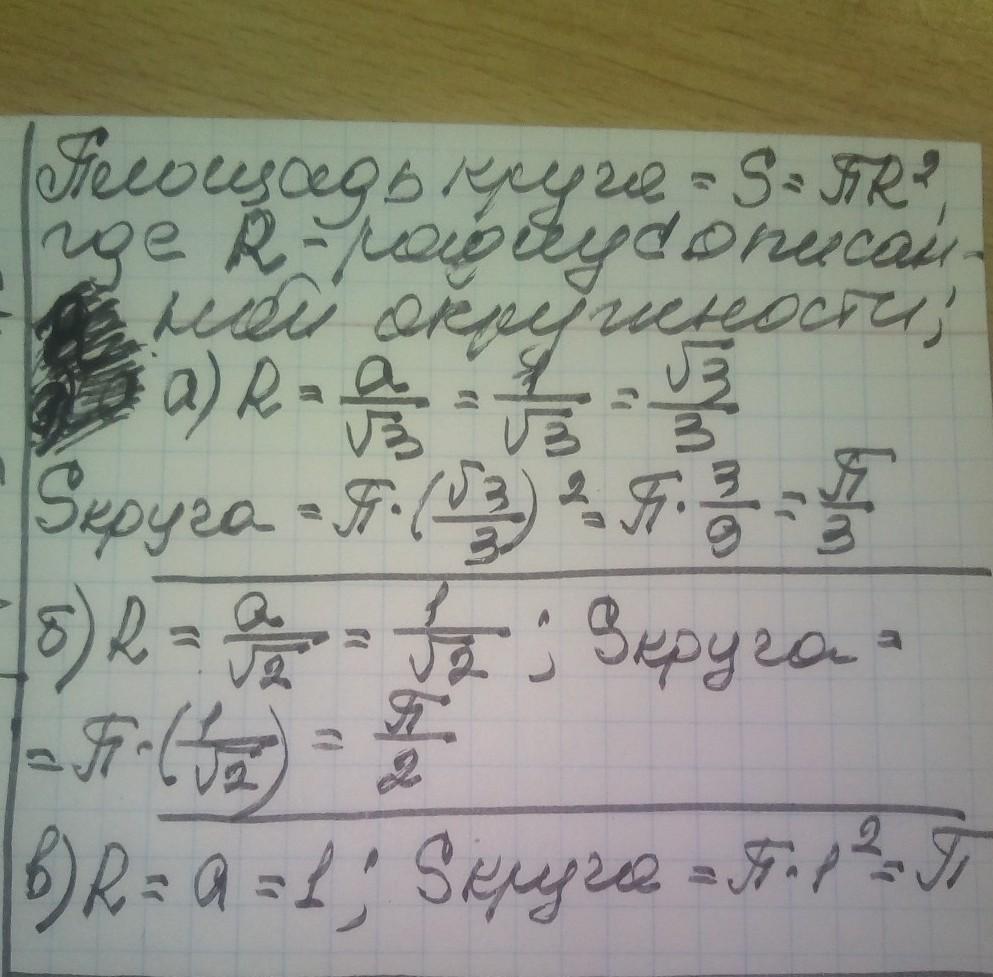 Площадь круга = S = πR²,
где R - радиус описан-
ной окружности;
а) R = a/√3 = 1/√3 = √3/3
Sкруга = π · (√3/3)² = π · 3/9 = π/3
б) R = a/√2 = 1/√2 ; Sкруга =
= π · (1/√2) = π/2
в) R = a = 1 ; Sкруга = π · 1² = π